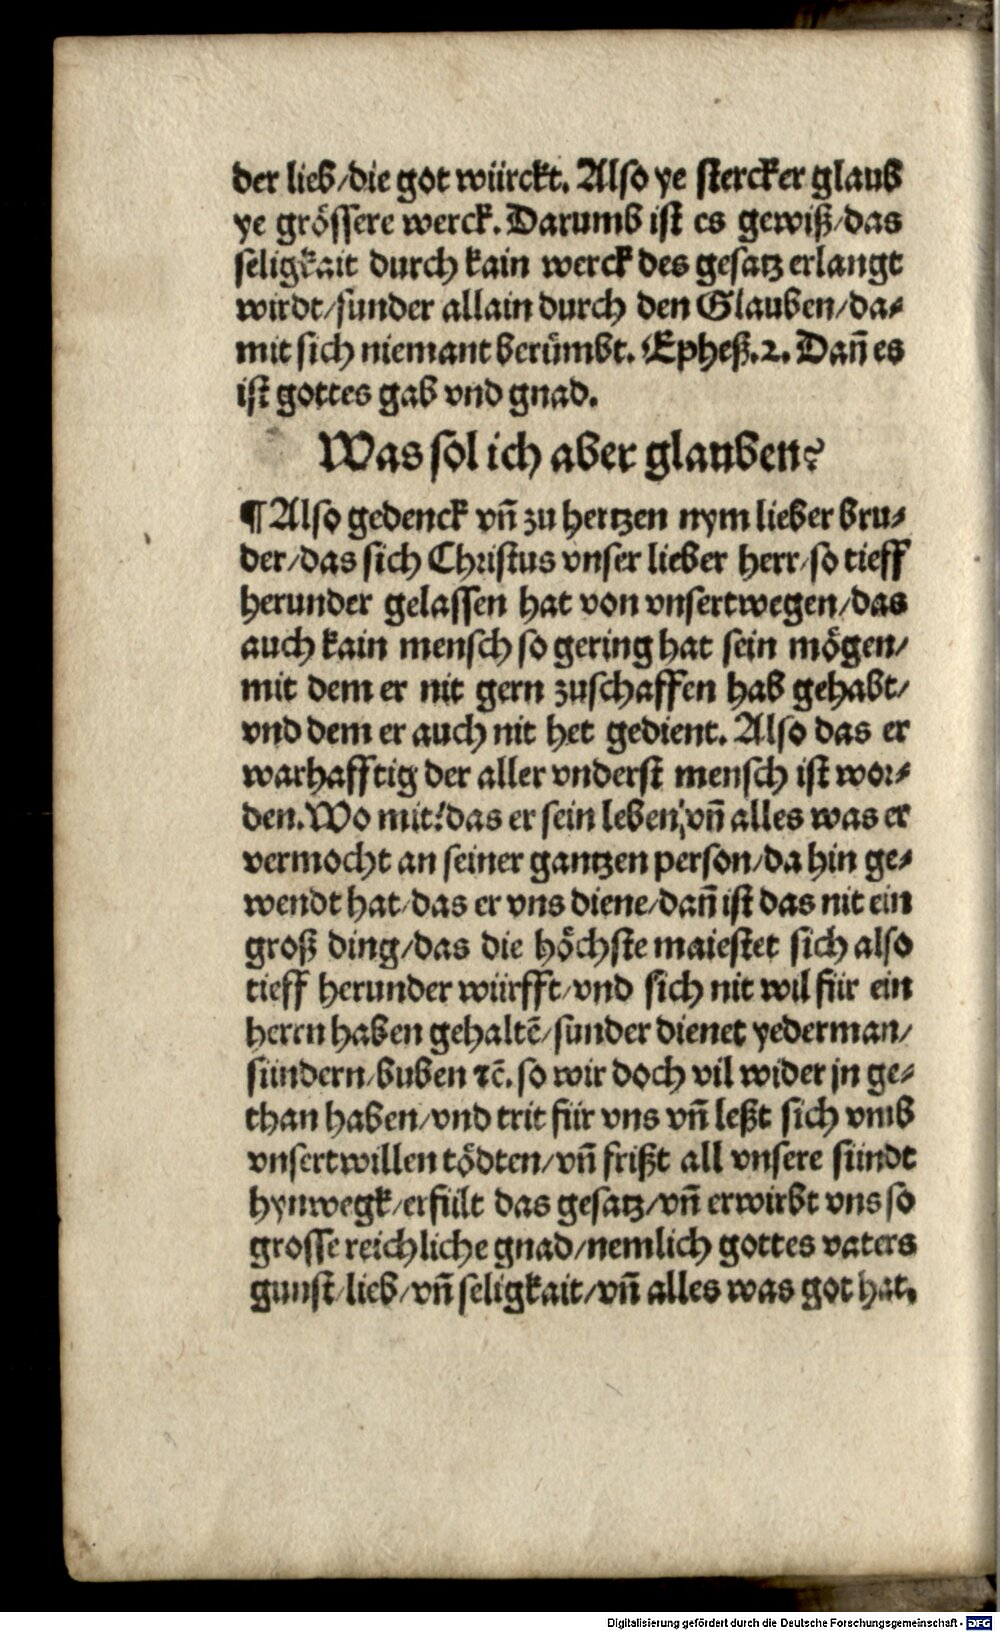 der lieb/die got würckt. Also ye stercker glaub
ye grössere werck. Darumb ist es gewiß/das
seligkait durch kain werck des gesatz erlangt
wirdt/sunder allain durch den Glauben/da⸗
mit sich niemant berümbt. Epheß.2. Dañ es
ist gottes gab vnd gnad.
Was sol ich aber glauben?
¶ Also gedenck vñ zu hertzen nym lieber bru⸗
der/das sich Christus vnser lieber herr/so tieff
herunder gelassen hat von vnsertwegen/das
auch kain mensch so gering hat sein mögen/
mit dem er nit gern zuschaffen hab gehabt/
vnd dem er auch nit het gedient. Also das er
warhafftig der aller vnderst mensch ist wor⸗
den. Wo mit? das er sein leben/vñ alles was er
vermocht an seiner gantzen person/da hin ge⸗
wendt hat/das er vns diene/dañ ist das nit ein
groß ding/das die höchste maiestet sich also
tieff herunder würfft/vnd sich nit wil für ein
herrn haben gehaltē/sunder dienet yederman/
sündern/buben ⁊c̄. so wir doch vil wider jn ge⸗
than haben/vnd trit für vns vñ leßt sich vmb
vnsertwillen tödten/vñ frißt all vnsere sündt
hynwegk/erfült das gesatz/vñ erwirbt vns so
grosse reichliche gnad/nemlich gottes vaters
gunst/lieb/vñ seligkait/vñ alles was got hat.
Digitalisierung gefördert durch die Deutsche Forschungsgemeinschaft - DFG